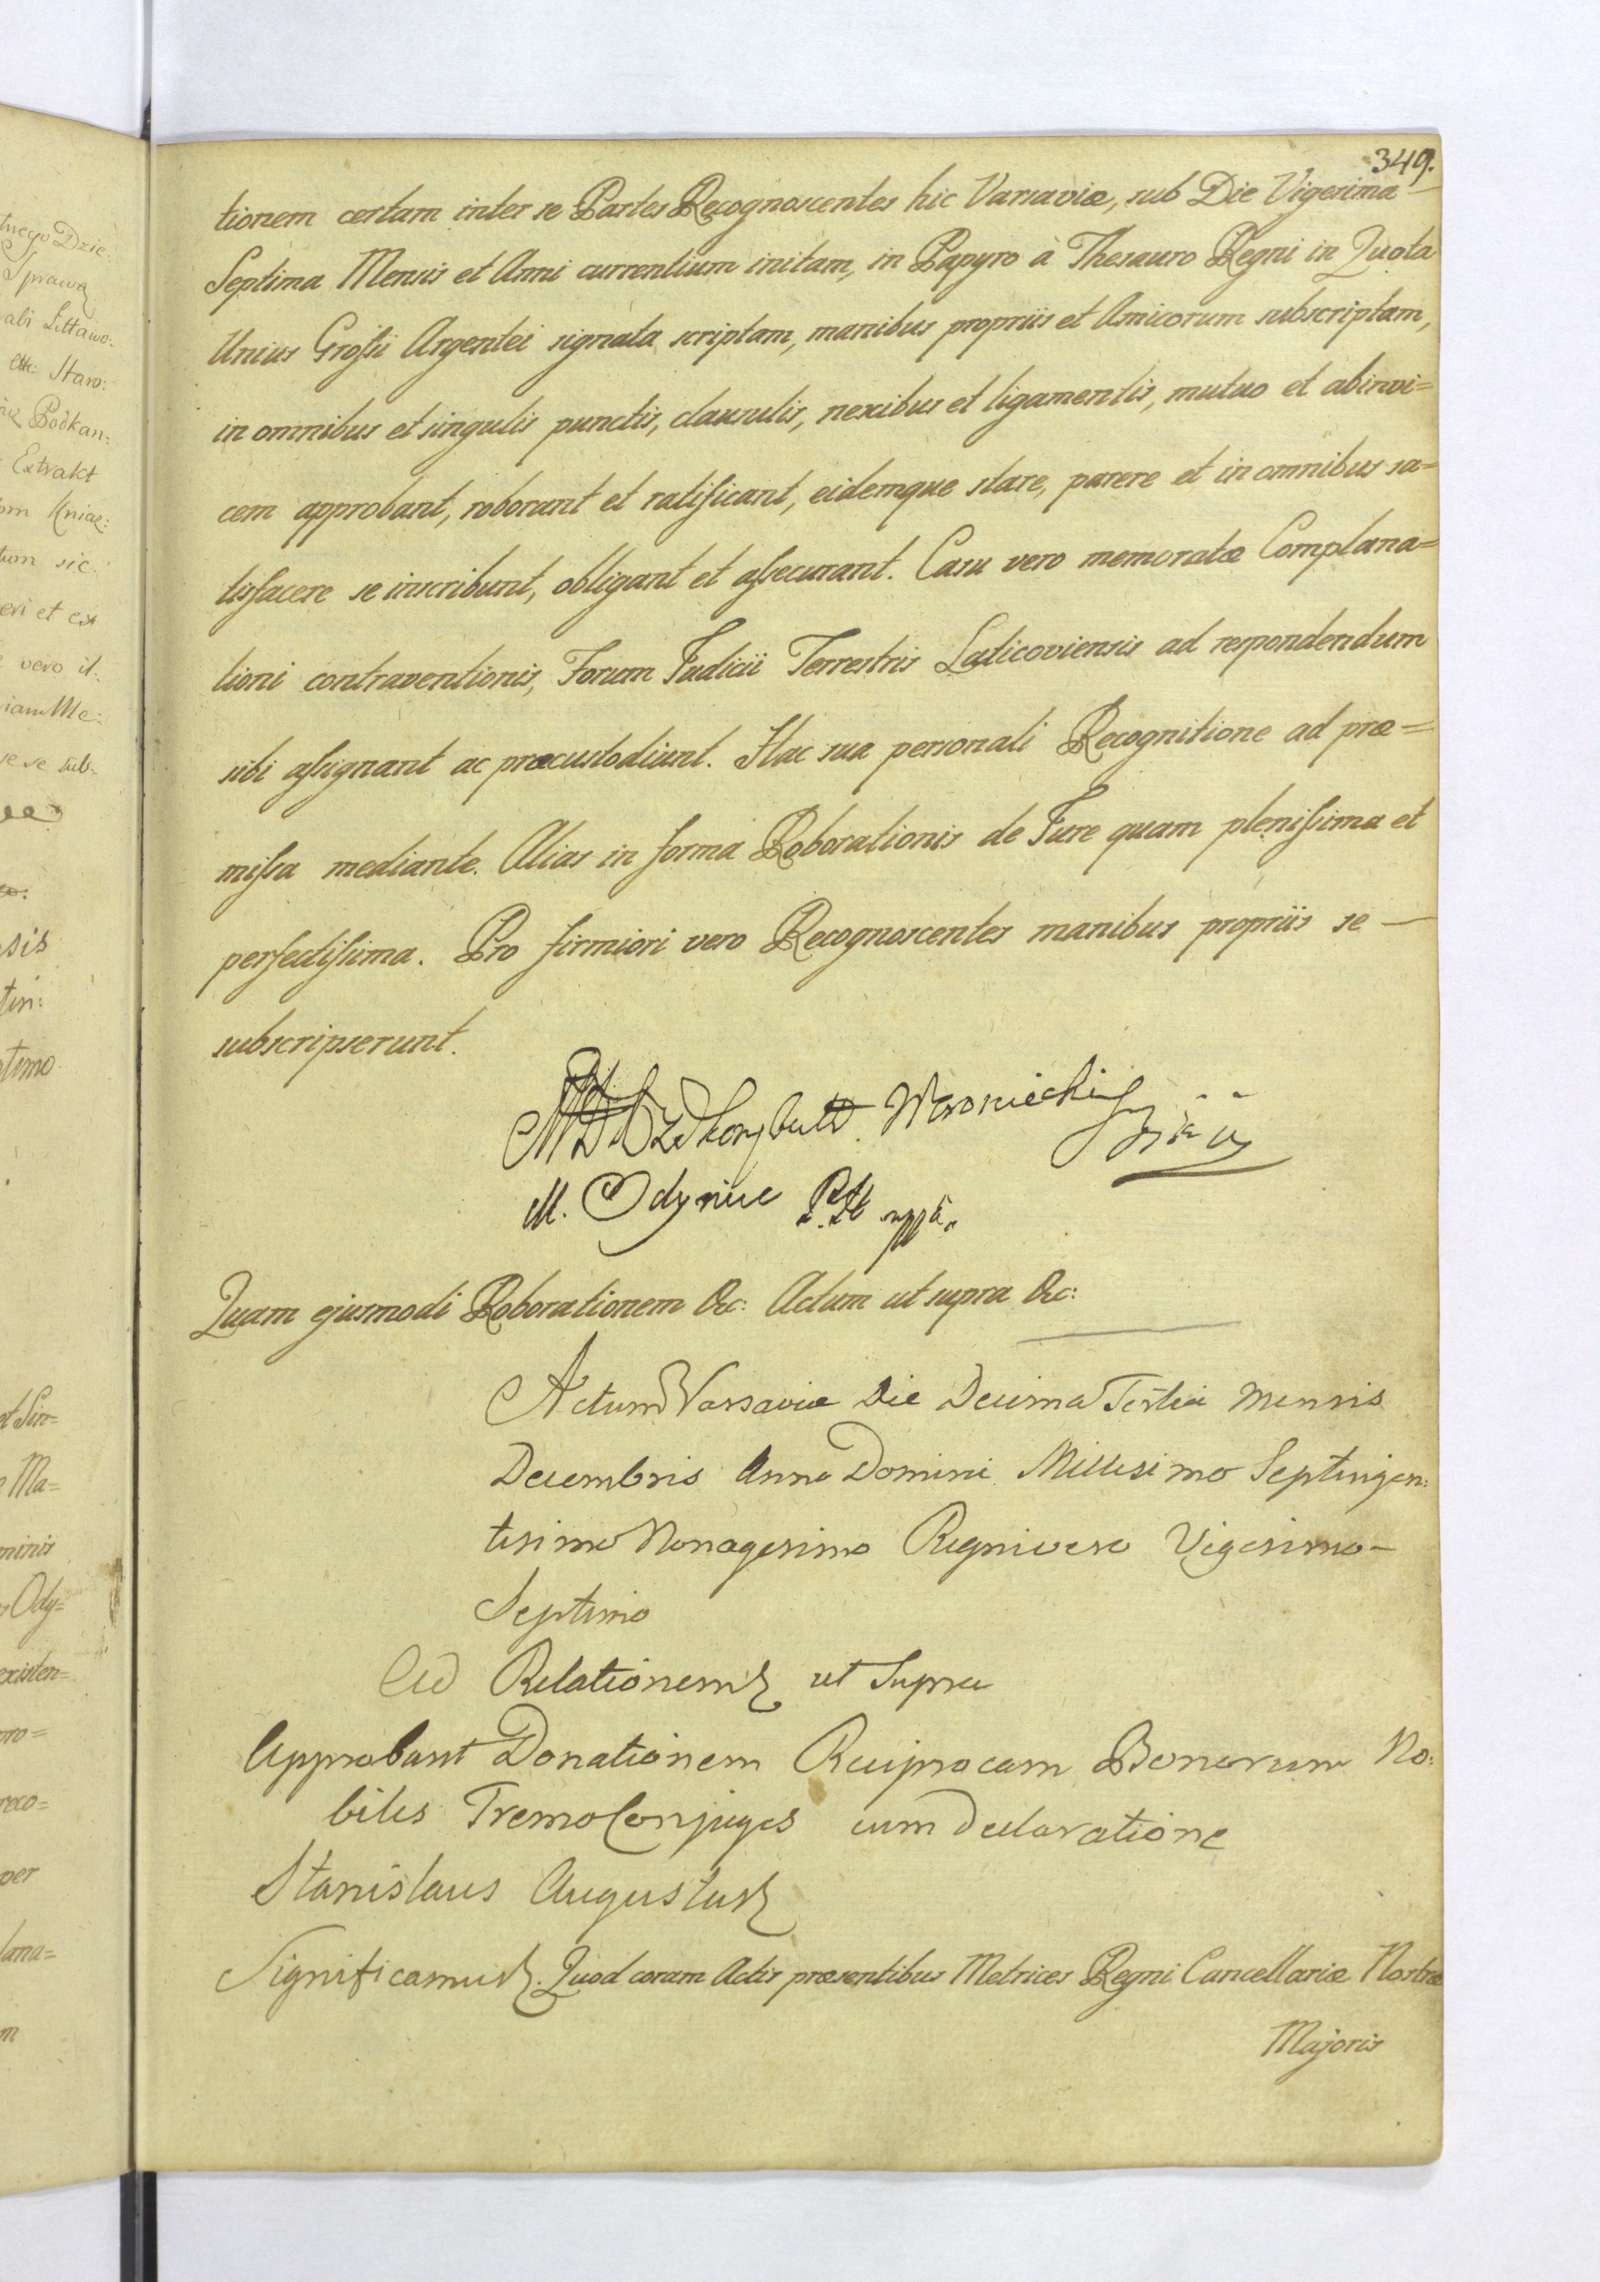 349.
tionem certam inter se Partes Recognoscentes hic Varsaviæ, sub Die Vigesima
Septima Mensis et Anni currentium initam, in Papyro à Thesauro Regni in Quota
Unius Grossi Argentei signata scriptam, manibus propriis et Amicorum subscriptam,
in omnibus et singulis punctis, clausulis, nexibus et ligamentis, mutuo et abinvi=
cem approbant, roborant et ratificant, eidemque stare, parere et in omnibus sa=
tisfacere se inscribunt, obligant et assecurant. Casu vero memoratæ Complana=
tioni contraventionis, Forum Judicii Terrestris Laticoviensis ad respondendum
sibi assignant ac præcustodiunt. Hac sua personali Recognitione ad præ=
missa mediante. Alias in forma Roborationis de Jure quam plenissima et
perfectissima. Pro firmiori vero Recognoscentes manibus propriis se —
subscripserunt.
Korybutt Woroniecki
M. Odyniec
Quam ejusmodi Roborationem &c: Actum ut supra &c:
Actum Varsaviæ Die Decima Tertia Mensis
Decembris Anno Domini Millesimo Septingen:
tesimo Nonagesimo Regni vero Vigesimo—
Septimo
Ad Relationem ut Supra
Approbant Donationem Reciprocam Bonorum No:
biles Tremo Conjuges cum Declaratione
Stanislaus Augustus
Significamus. Quod coram Actis præsentibus Metrices Regni Cancellariæ Nostræ
Majoris